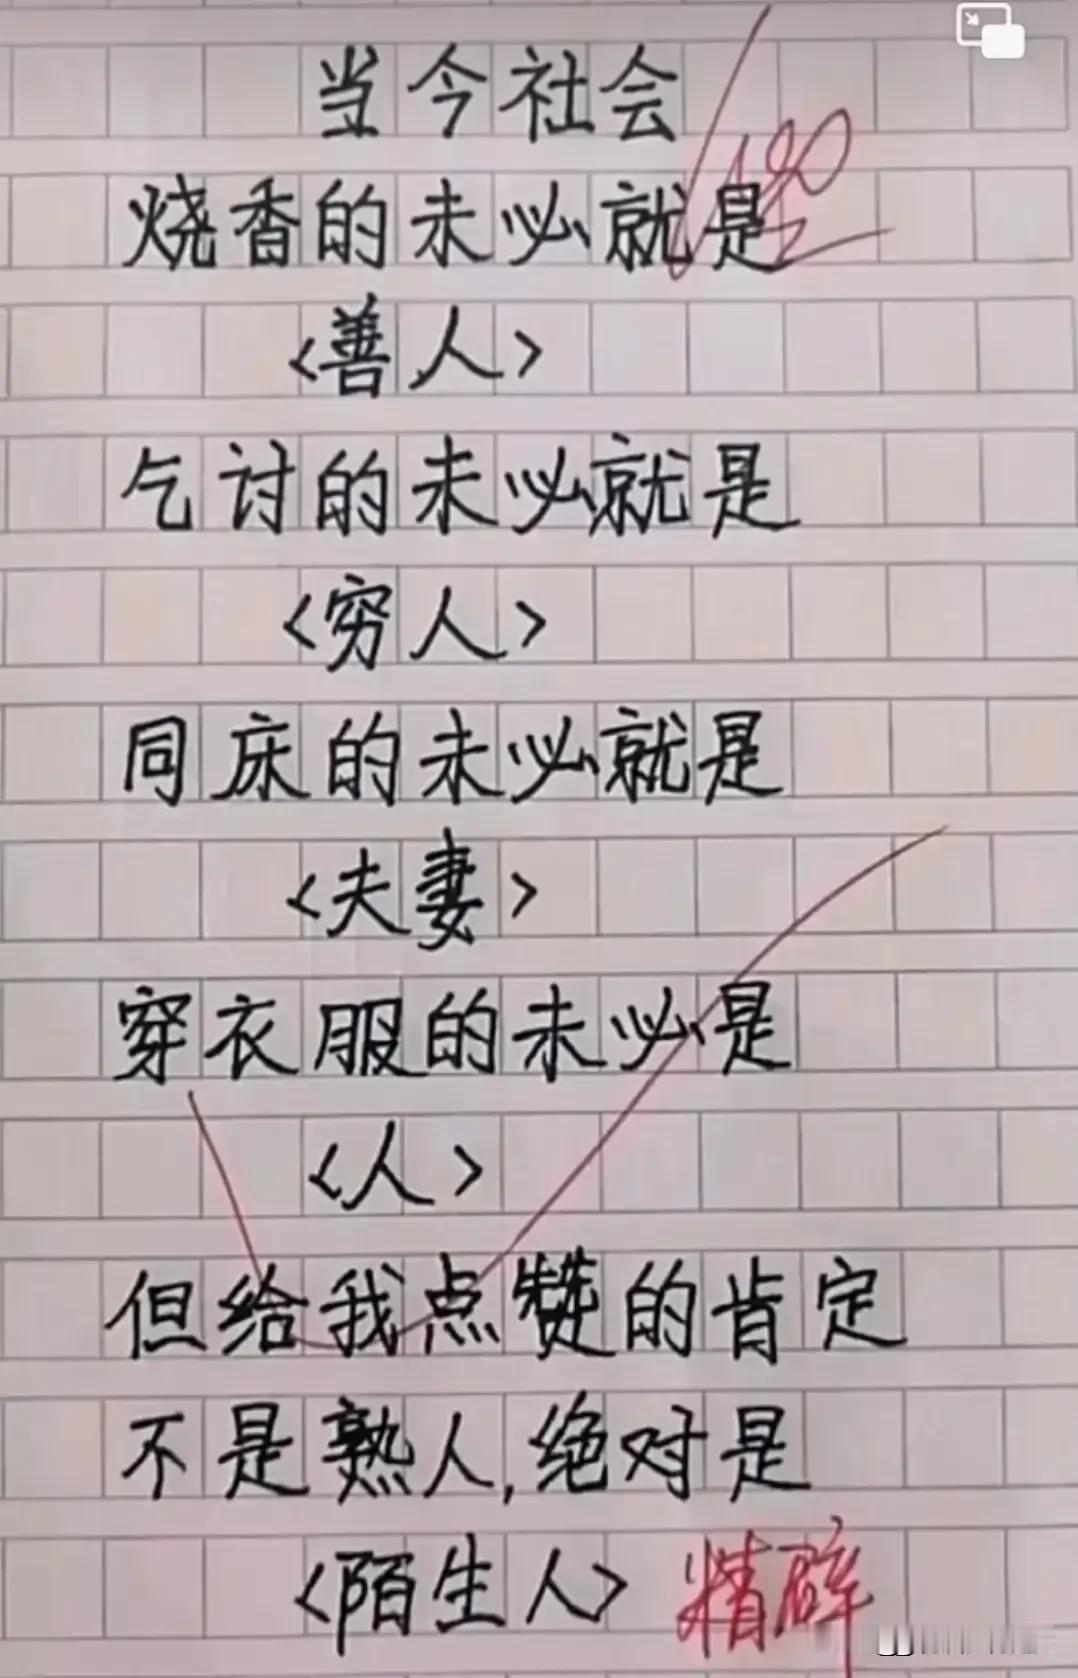 当今社会
烧香的未必就是
<善人>
乞讨的未必就是
<穷人>
同床的未必就是
<夫妻>
穿衣服的未必是
<人>
但给我点赞的肯定
不是熟人,绝对是
<陌生人> 精辟